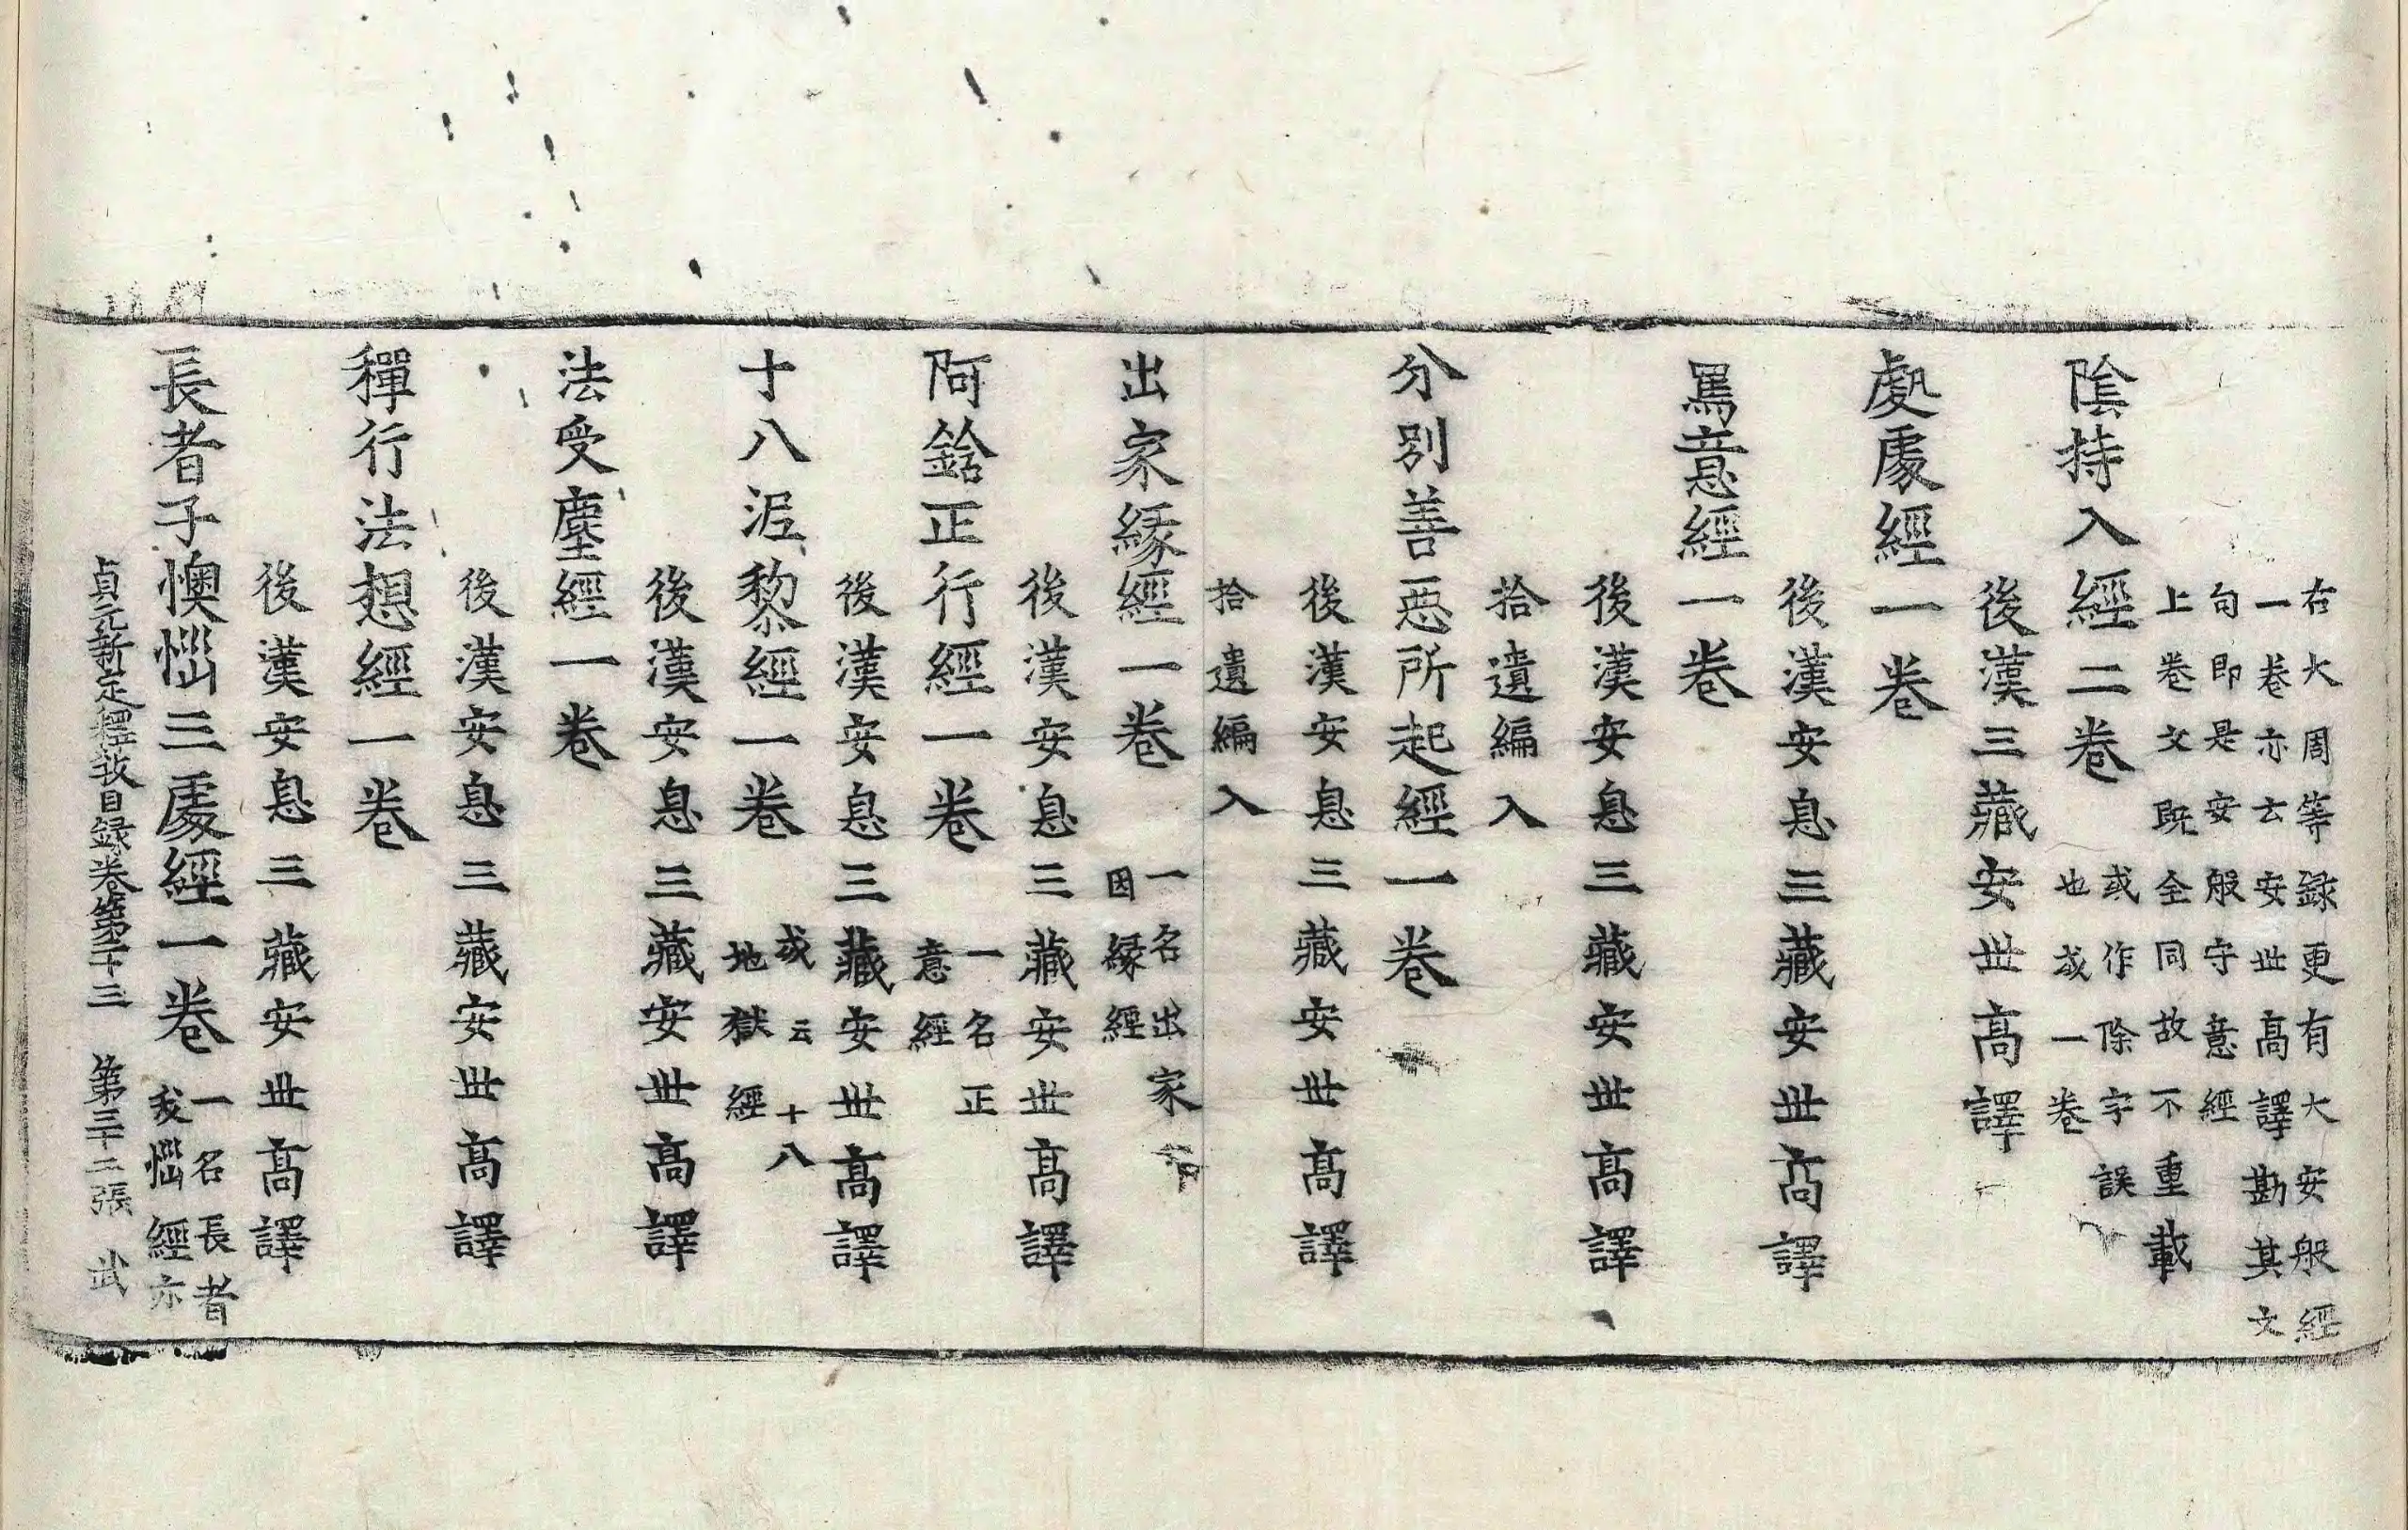 右大周等録更有大安般經
一卷亦云安世高譯勘其文
句即是安般守意經
上卷文既全同故不重載
陰持入經二卷
或作除字誤
也或一卷
後漢三藏安世高譯
處處經一卷
後漢安息三藏安世高譯
罵意經一卷
後漢安息三藏安世高譯
拾遺編入
分別善惡所起經一卷
後漢安息三藏安世高譯
拾遺編入
出家緣經一卷
一名出家
因緣經
後漢安息三藏安世高譯
阿鋡正行經一卷
一名正
意經
後漢安息三藏安世高譯
十八泥黎經一卷
或云十八
地獄經
後漢安息三藏安世高譯
法受塵經一卷
後漢安息三藏安世高譯
禪行法想經一卷
後漢安息三藏安世高譯
長者子懊惱三處經一卷
一名長者
我惱經亦
貞元新定釋教目録卷第二十三 第三十二張 武